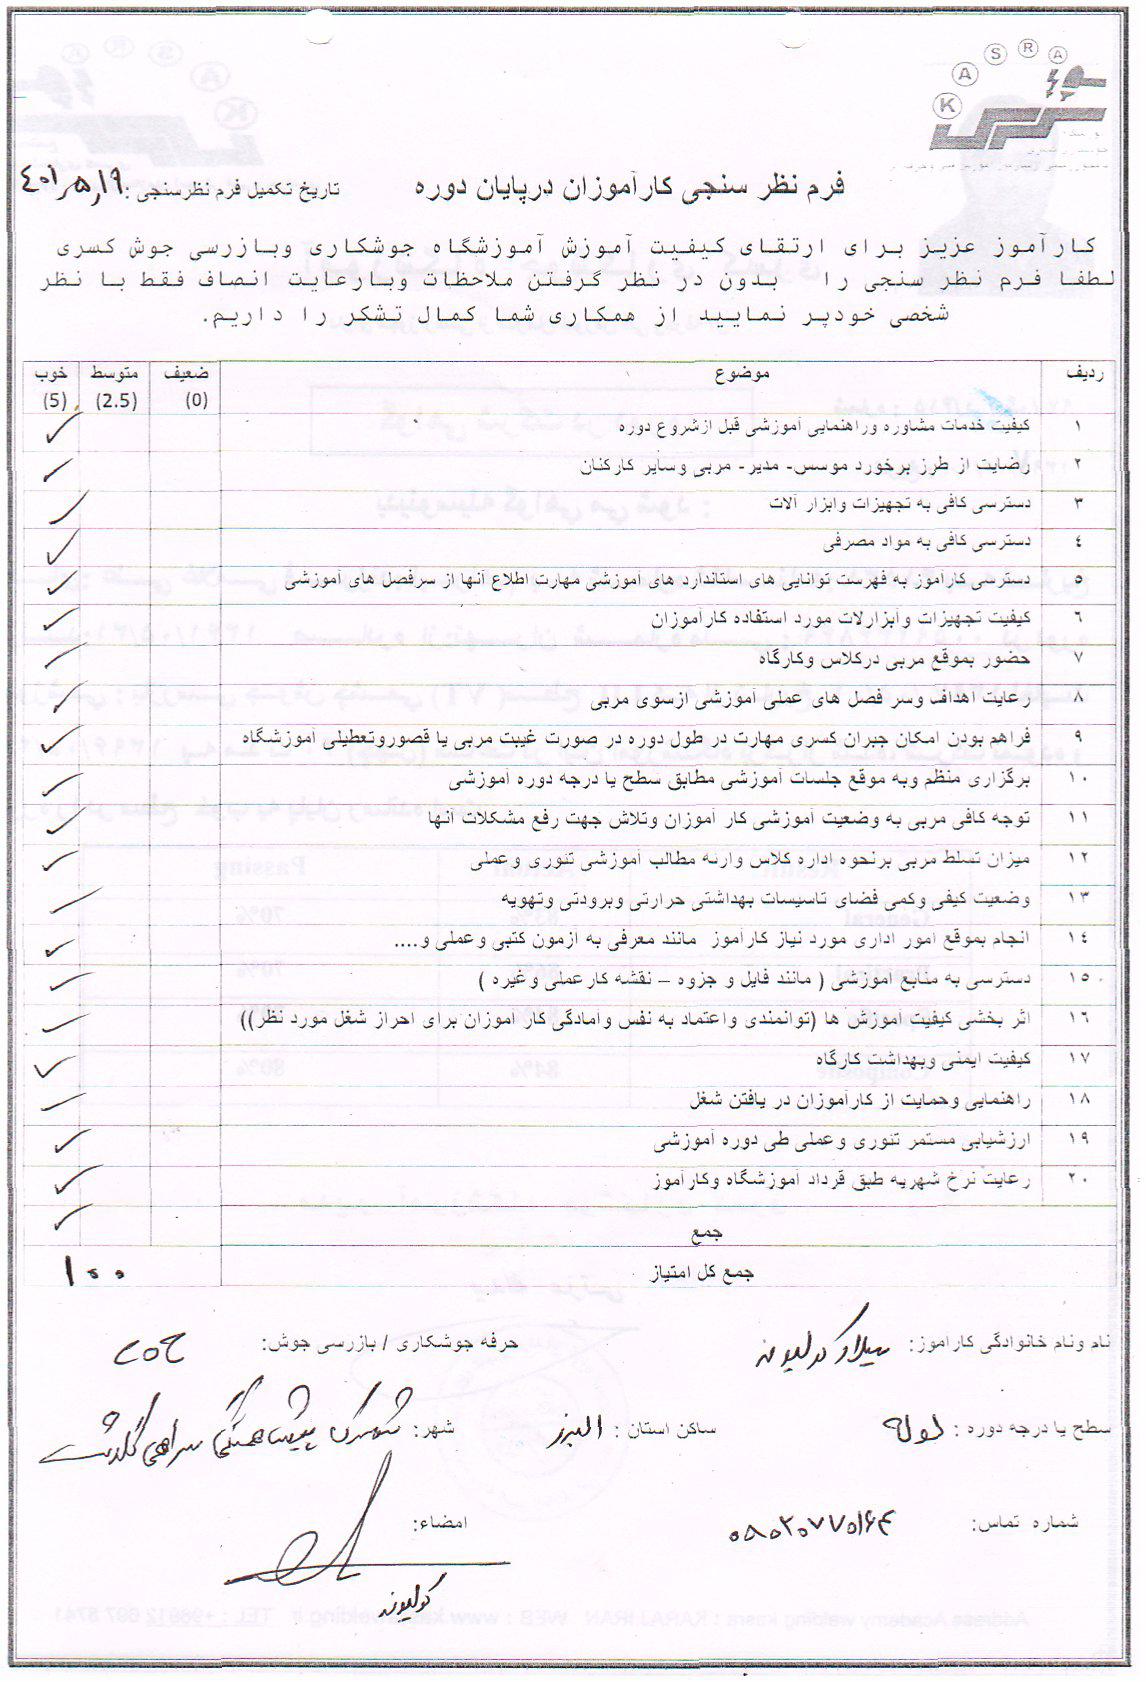 K A S R A
فرم نظر سنجی کارآموزان درپایان دوره
تاریخ تکمیل فرم نظرسنجی : ۴۰۱,۵,۱۹
کارآموز عزیز برای ارتقای کیفیت آموزش آموزشگاه جوشکاری وبازرسی جوش کسری
لطفا فرم نظر سنجی را بدون در نظر گرفتن ملاحظات وبارعایت انصاف فقط با نظر
شخصی خودپر نمایید از همکاری شما کمال تشکر را داریم.
ردیف موضوع ضعیف (0) متوسط (2.5) خوب (5)
۱ کیفیت خدمات مشاوره وراهنمایی آموزشی قبل ازشروع دوره ✓
۲ رضایت از طرز برخورد موسس- مدیر- مربی وسایر کارکنان ✓
۳ دسترسی کافی به تجهیزات وابزار آلات ✓
۴ دسترسی کافی به مواد مصرفی ✓
۵ دسترسی کارآموز به فهرست توانایی های استاندارد های آموزشی مهارت اطلاع آنها از سرفصل های آموزشی ✓
۶ کیفیت تجهیزات وابزارلات مورد استفاده کارآموزان ✓
۷ حضور بموقع مربی درکلاس وکارگاه ✓
۸ رعایت اهداف وسر فصل های عملی آموزشی ازسوی مربی ✓
۹ فراهم بودن امکان جبران کسری مهارت در طول دوره در صورت غیبت مربی یا قصوروتعطیلی آموزشگاه ✓
۱۰ برگزاری منظم وبه موقع جلسات آموزشی مطابق سطح یا درجه دوره آموزشی ✓
۱۱ توجه کافی مربی به وضعیت آموزشی کار آموزان وتلاش جهت رفع مشکلات آنها ✓
۱۲ میزان تسلط مربی برنحوه اداره کلاس وارئه مطالب آموزشی تئوری وعملی ✓
۱۳ وضعیت کیفی وکمی فضای تاسیسات بهداشتی حرارتی وبرودتی وتهویه ✓
۱۴ انجام بموقع امور اداری مورد نیاز کارآموز مانند معرفی به ازمون کتبی وعملی و.... ✓
۱۵ دسترسی به منابع اموزشی ( مانند فایل و جزوه – نقشه کارعملی وغیره ) ✓
۱۶ اثر بخشی کیفیت آموزش ها (توانمندی واعتماد به نفس وامادگی کار آموزان برای احراز شغل مورد نظر)) ✓
۱۷ کیفیت ایمنی وبهداشت کارگاه ✓
۱۸ راهنمایی وحمایت از کارآموزان در یافتن شغل ✓
۱۹ ارزشیابی مستمر تئوری وعملی طی دوره آموزشی ✓
۲۰ رعایت نرخ شهریه طبق قرداد آموزشگاه وکارآموز ✓
جمع ✓
جمع کل امتیاز ۱۰۰
نام ونام خانوادگی کاراموز: میلاد کولیوند حرفه جوشکاری / بازرسی جوش:
سطح یا درجه دوره : لوله ساکن استان : البرز شهر:
شماره تماس: امضاء:
کولیوند